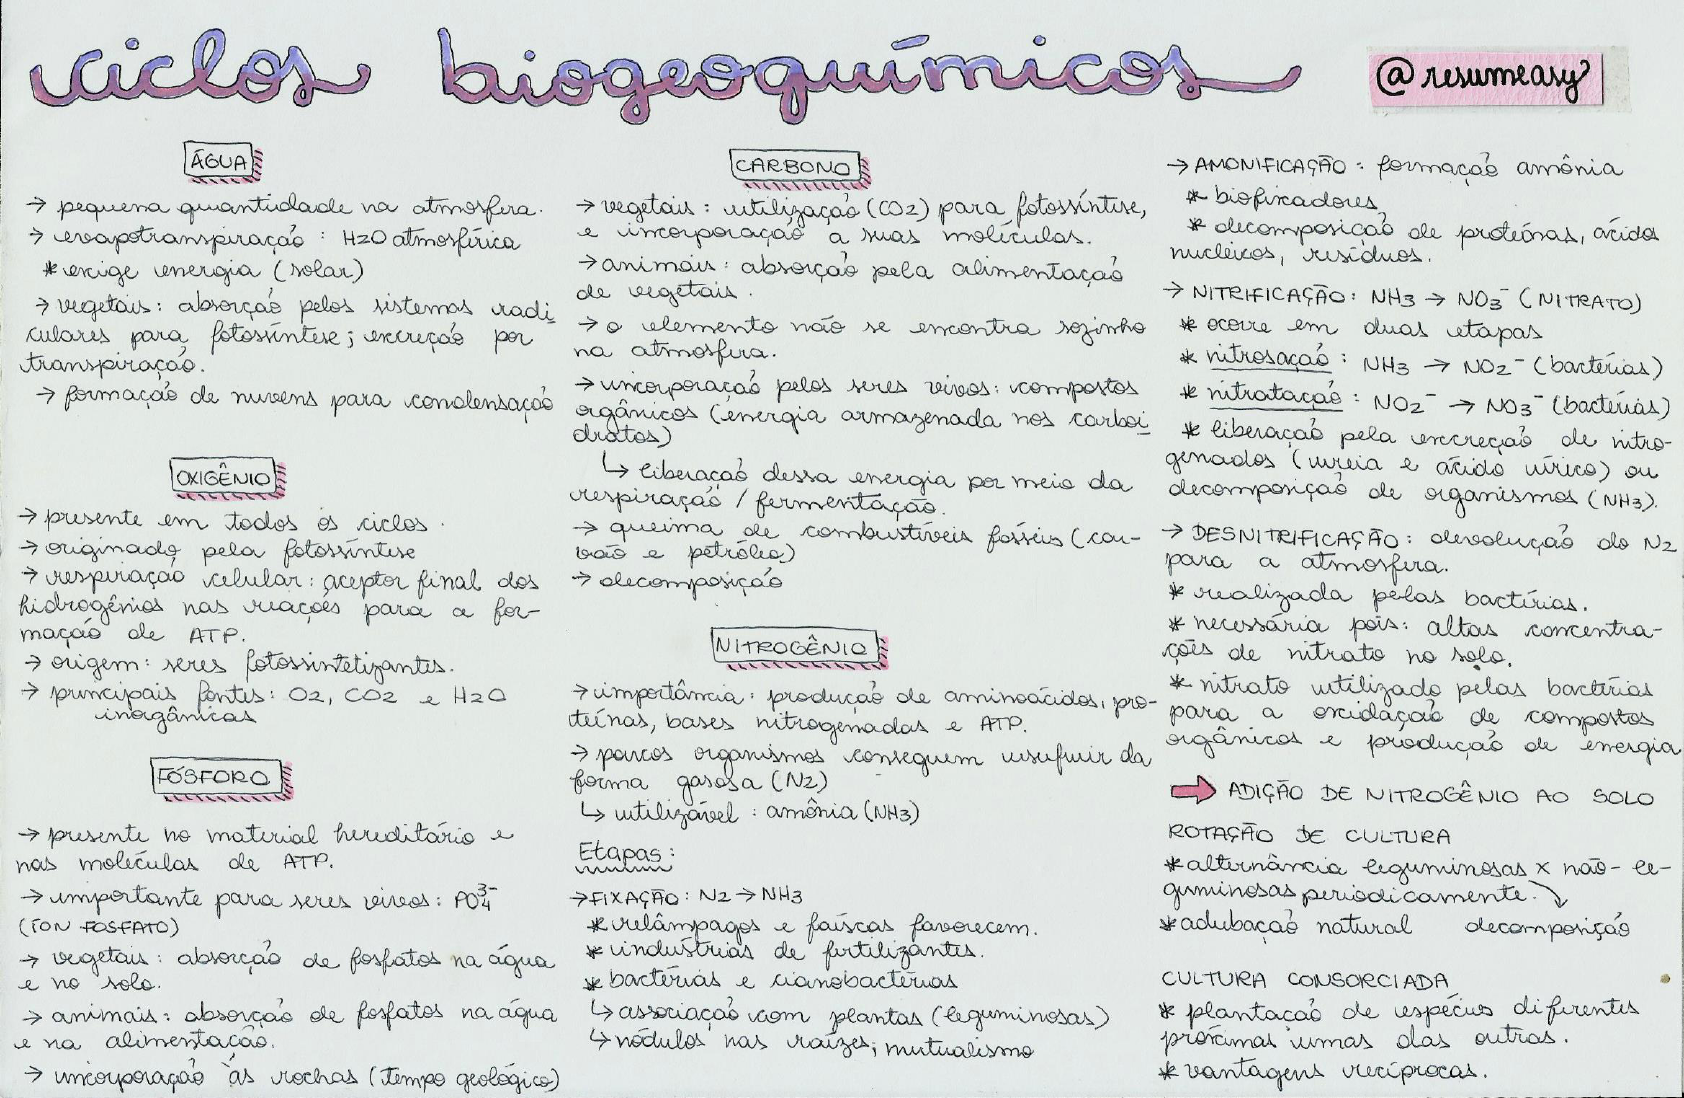 ciclos biogeoquímicos
@resumeasy
ÁGUA
→ pequena quantidade na atmosfera.
→ evapotranspiração : H2O atmosférica
* exige energia (solar)
→ vegetais: absorção pelos sistemas radi
culares para fotossíntese; excreção por
transpiração.
→ formação de nuvens para condensação
OXIGÊNIO
→ presente em todos os ciclos.
→ originado pela fotossíntese
→ respiração celular: aceptor final dos
hidrogênios nas reações para a for-
mação de ATP.
→ origem: seres fotossintetizantes.
→ principais fontes: O2, CO2 e H2O
inorgânicas
FÓSFORO
→ presente no material hereditário e
nas moléculas de ATP.
→ importante para seres vivos: PO4³⁻
(ÍON FOSFATO)
→ vegetais: absorção de fosfatos na água
e no solo.
→ animais: absorção de fosfatos na água
e na alimentação.
→ incorporação às rochas (tempo geológico)
CARBONO
→ vegetais: utilização (CO2) para fotossíntese,
e incorporação a suas moléculas.
→ animais: absorção pela alimentação
de vegetais.
→ o elemento não se encontra sozinho
na atmosfera.
→ incorporação pelos seres vivos: compostos
orgânicos (energia armazenada nos carboi
dratos)
↳ liberação dessa energia por meio da
respiração / fermentação.
→ queima de combustíveis fósseis (car-
vão e petróleo)
→ decomposição
NITROGÊNIO
→ importância: produção de aminoácidos, pro-
teínas, bases nitrogenadas e ATP.
→ poucos organismos conseguem usufruir da
forma gasosa (N2)
↳ utilizável : amônia (NH3)
Etapas:
→ FIXAÇÃO: N2 → NH3
* relâmpagos e faíscas favorecem.
* indústrias de fertilizantes.
* bactérias e cianobactérias
↳ associação com plantas (leguminosas)
↳ nódulos nas raízes; mutualismo
→ AMONIFICAÇÃO : formação amônia
* biofixadores
* decomposição de proteínas, ácidos
nucleicos, resíduos.
→ NITRIFICAÇÃO: NH3 → NO3⁻ (NITRATO)
* ocorre em duas etapas
* nitrosação : NH3 → NO2⁻ (bactérias)
* nitratação : NO2⁻ → NO3⁻ (bactérias)
* liberação pela excreção de nitro-
genados (ureia e ácido úrico) ou
decomposição de organismos (NH3).
→ DESNITRIFICAÇÃO: devolução do N2
para a atmosfera.
* realizada pelas bactérias.
* necessária pois: altas concentra-
ções de nitrato no solo.
* nitrato utilizado pelas bactérias
para a oxidação de compostos
orgânicos e produção de energia
➡ ADIÇÃO DE NITROGÊNIO AO SOLO
ROTAÇÃO DE CULTURA
* alternância leguminosas x não-le-
guminosas periodicamente.
* adubação natural decomposição
CULTURA CONSORCIADA
* plantação de espécies diferentes
próximas umas das outras.
* vantagens recíprocas.